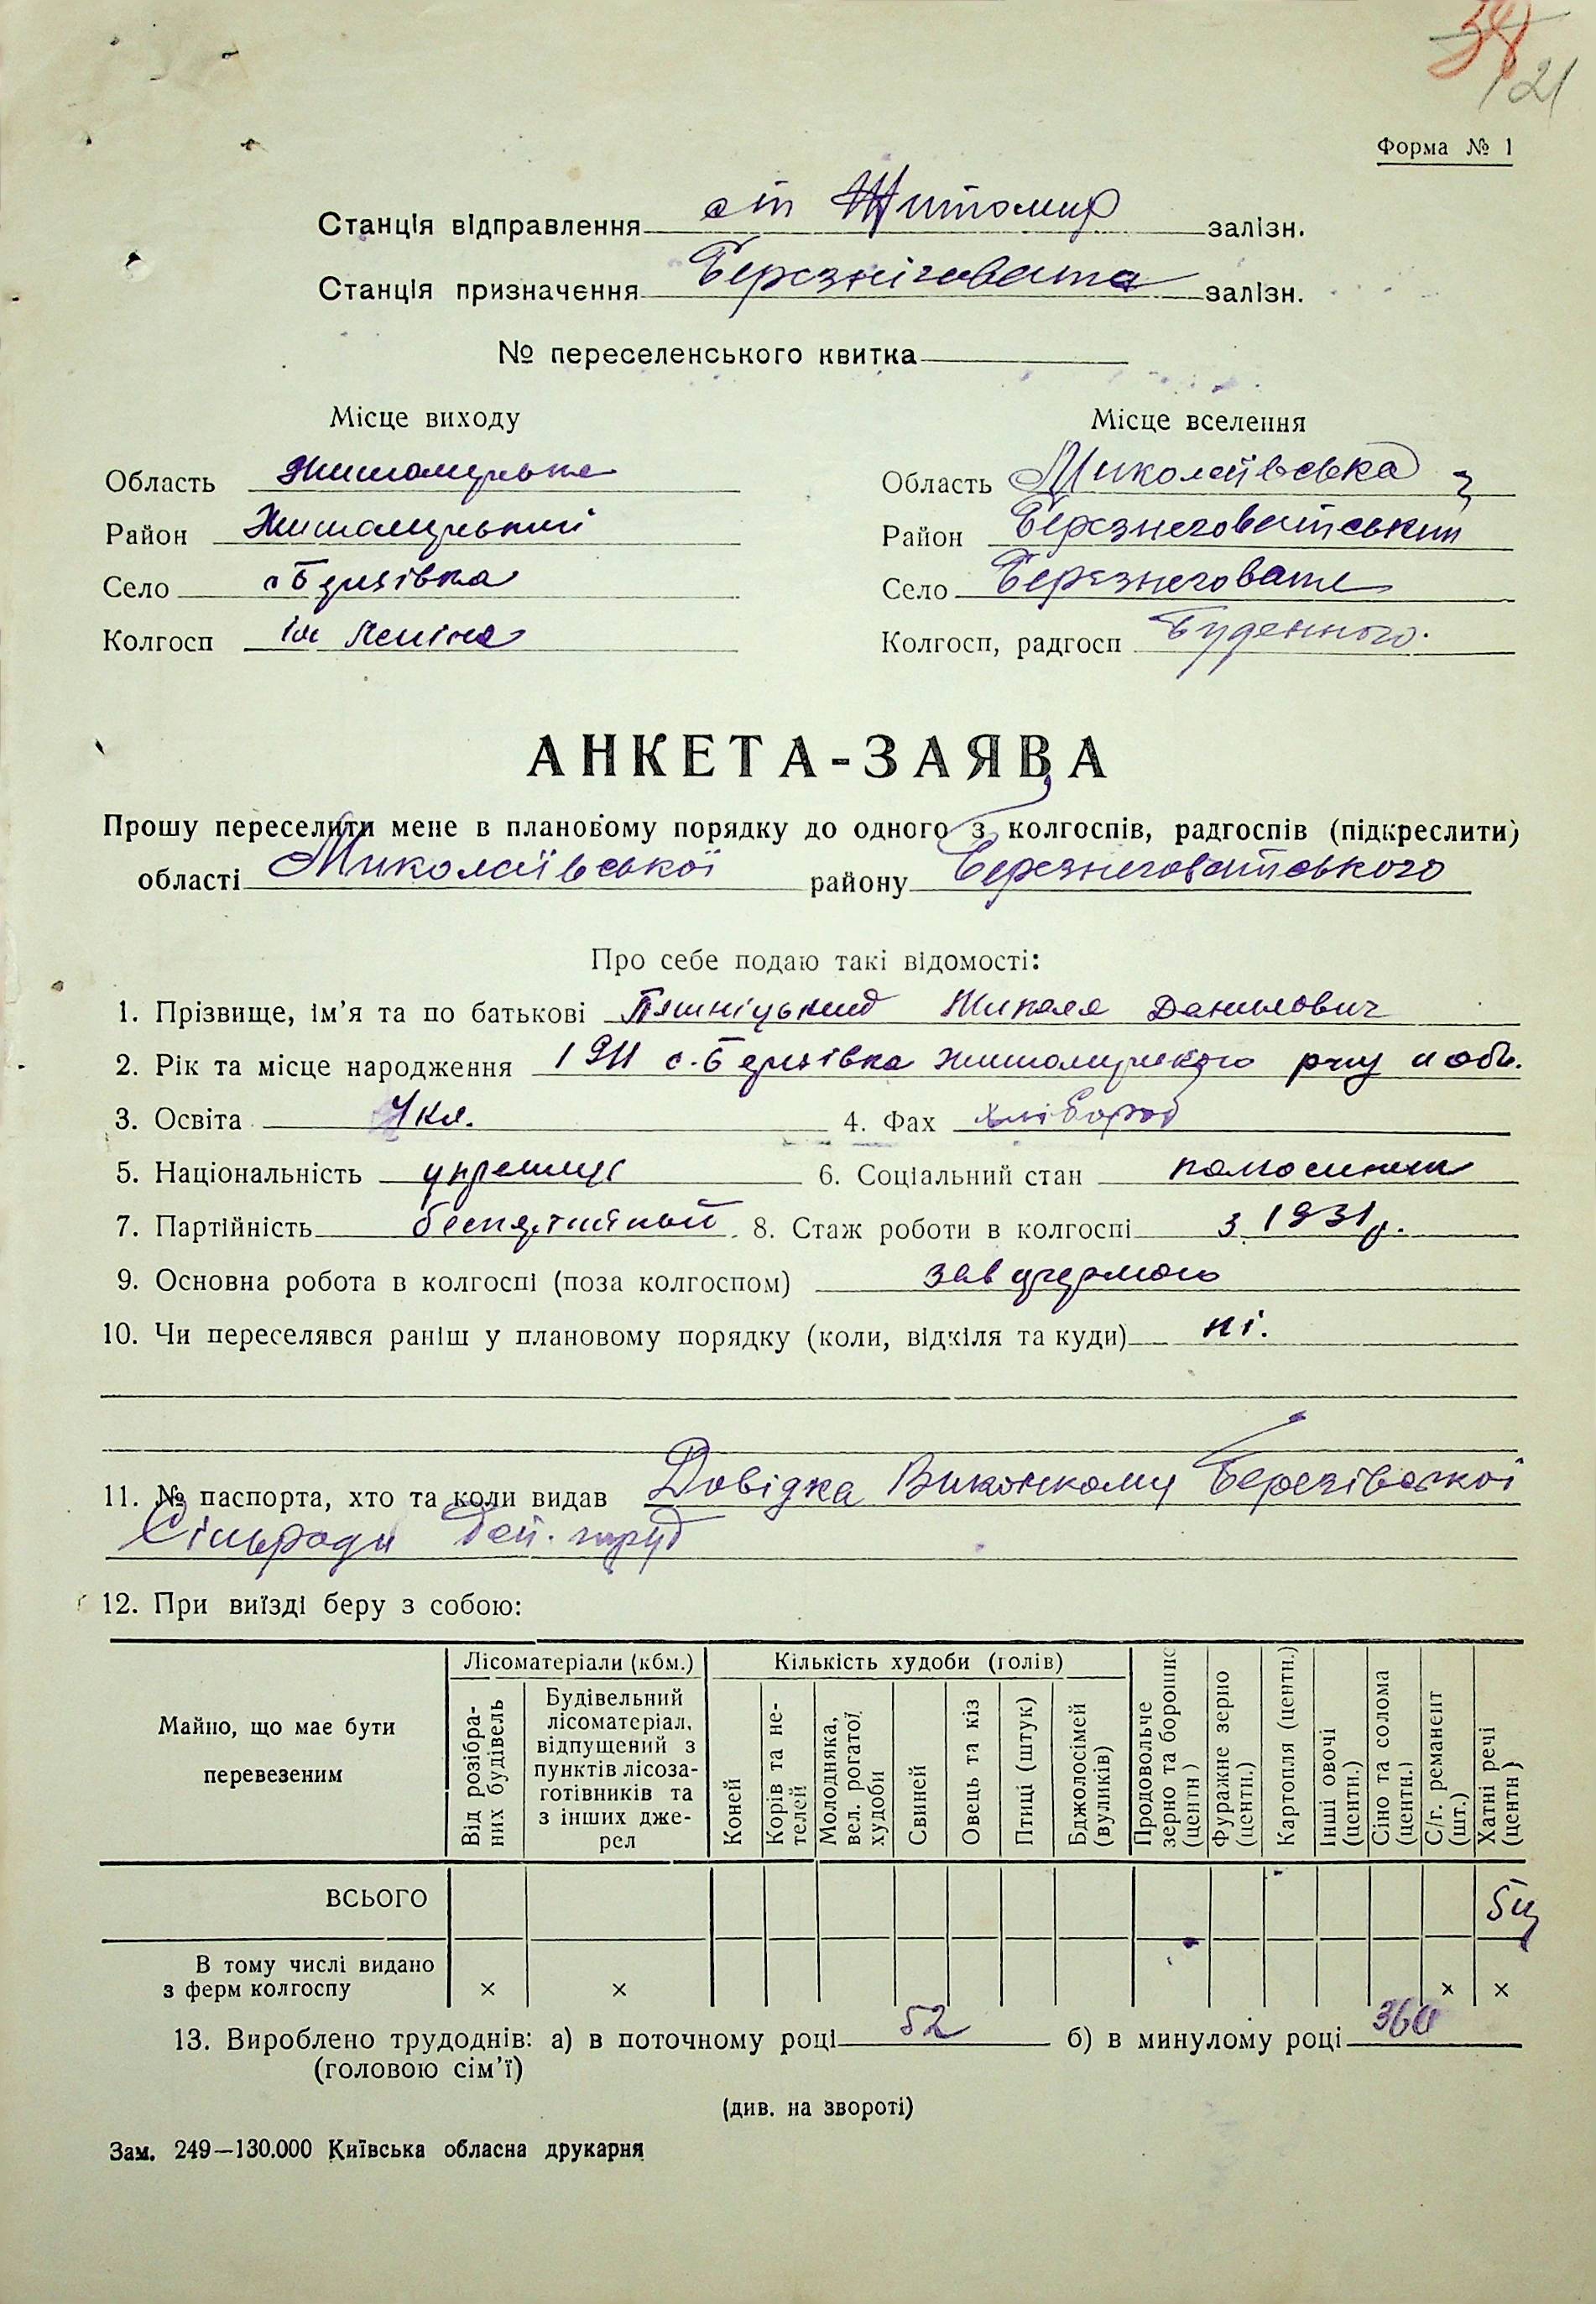 38
121
Форма № 1
Станція відправлення ст Житомир залізн.
Станція призначення Березнігувата залізн.
№ переселенського квитка
Місце виходу
Місце вселення
Область Житомирська
Область Миколаївська
Район Житомирський
Район Березнеговатський
Село с Березівка
Село Березнеговате
Колгосп ім Леніна
Колгосп, радгосп Буденного.
АНКЕТА-ЗАЯВА
Прошу переселити мене в плановому порядку до одного з колгоспів, радгоспів (підкреслити)
області Миколаївської району Березнеговатського
Про себе подаю такі відомості:
1. Прізвище, ім'я та по батькові Пятніцький Микола Данилович
2. Рік та місце народження 1911 с. Березівка Житомирского р-ну и обл.
3. Освіта 4 кл. 4. Фах хлібороб
5. Національність українець 6. Соціальний стан колгоспник
7. Партійність беспартійний 8. Стаж роботи в колгоспі з 1931 р.
9. Основна робота в колгоспі (поза колгоспом) зав фермою
10. Чи переселявся раніш у плановому порядку (коли, відкіля та куди) ні.
11. № паспорта, хто та коли видав Довідка Виконкому Березівської
Сільради деп. труд
12. При виїзді беру з собою:
Майно, що має бути перевезеним
Лісоматеріали (кбм.)
Від розібраних будівель
Будівельний лісоматеріал, відпущений з пунктів лісозаготівників та з інших джерел
Кількість худоби (голів)
Коней
Корів та нетелей
Молодняка, вел. рогатої худоби
Свиней
Овець та кіз
Птиці (штук)
Бджолосімей (вуликів)
Продовольче зерно та борошно (центн)
Фуражне зерно (центн.)
Картопля (центн.)
Інші овочі (центн.)
Сіно та солома (центн.)
С/г. реманент (шт.)
Хатні речі (центн)
ВСЬОГО 5ц
В тому числі видано
з ферм колгоспу × × × ×
13. Вироблено трудоднів: а) в поточному році 52 б) в минулому році 360
(головою сім'ї)
(див. на звороті)
Зам. 249—130.000 Київська обласна друкарня